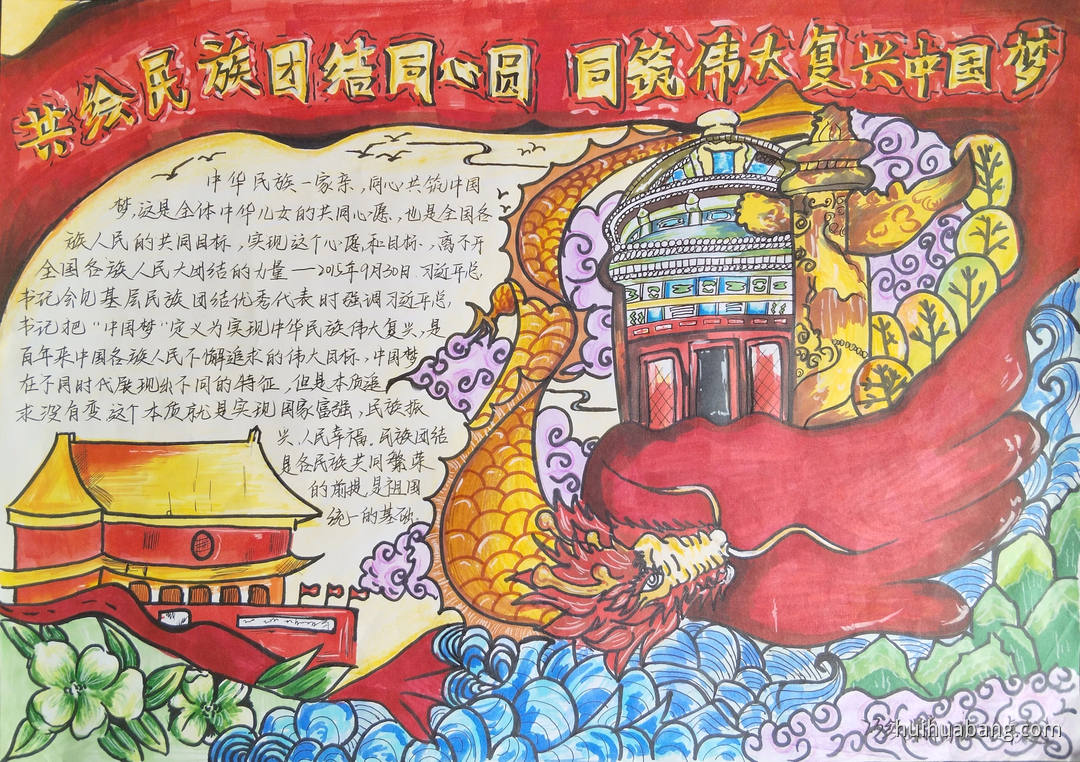 共绘民族团结同心圆 同筑伟大复兴中国梦
中华民族一家亲，同心共筑中国
梦，这是全体中华儿女的共同心愿，也是全国各
族人民的共同目标，实现这个心愿和目标，离不开
全国各族人民大团结的力量——2015年9月30日 习近平总
书记会见基层民族团结优秀代表时强调习近平总
书记把“中国梦”定义为实现中华民族伟大复兴，是
百年来中国各族人民不懈追求的伟大目标，中国梦
在不同时代展现出不同的特征，但是本质追
求没有变这个本质就是实现国家富强，民族振
兴，人民幸福。民族团结
是各民族共同繁荣
的前提，是祖国
统一的基础。
huihuabang.com